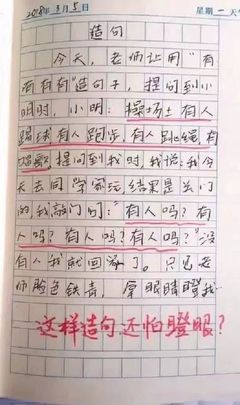 2018年3月5日 星期一 天气
造句
今天，老师让用“有
有有有”造句子，提问到小
明时，小明：操场上有人
踢球有人跑步，有人跳绳，有
唱歌，提问到我时我说：我今
天去同学家玩结果是关门
的我敲门问：“有人吗？有
人吗？有人吗？有人吗？”没
有人我就回家了。只见老
师脸色铁青，拿眼睛瞪我
这样造句还怕瞪眼？